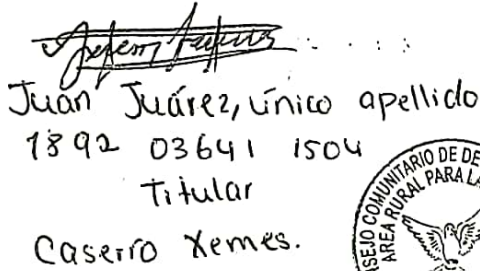 Juan Juárez, único apellido
1892 03641 1504
Titular
Caserío Xemes.
SEJO COMUNITARIO DE DE
AREA RURAL PARA LA